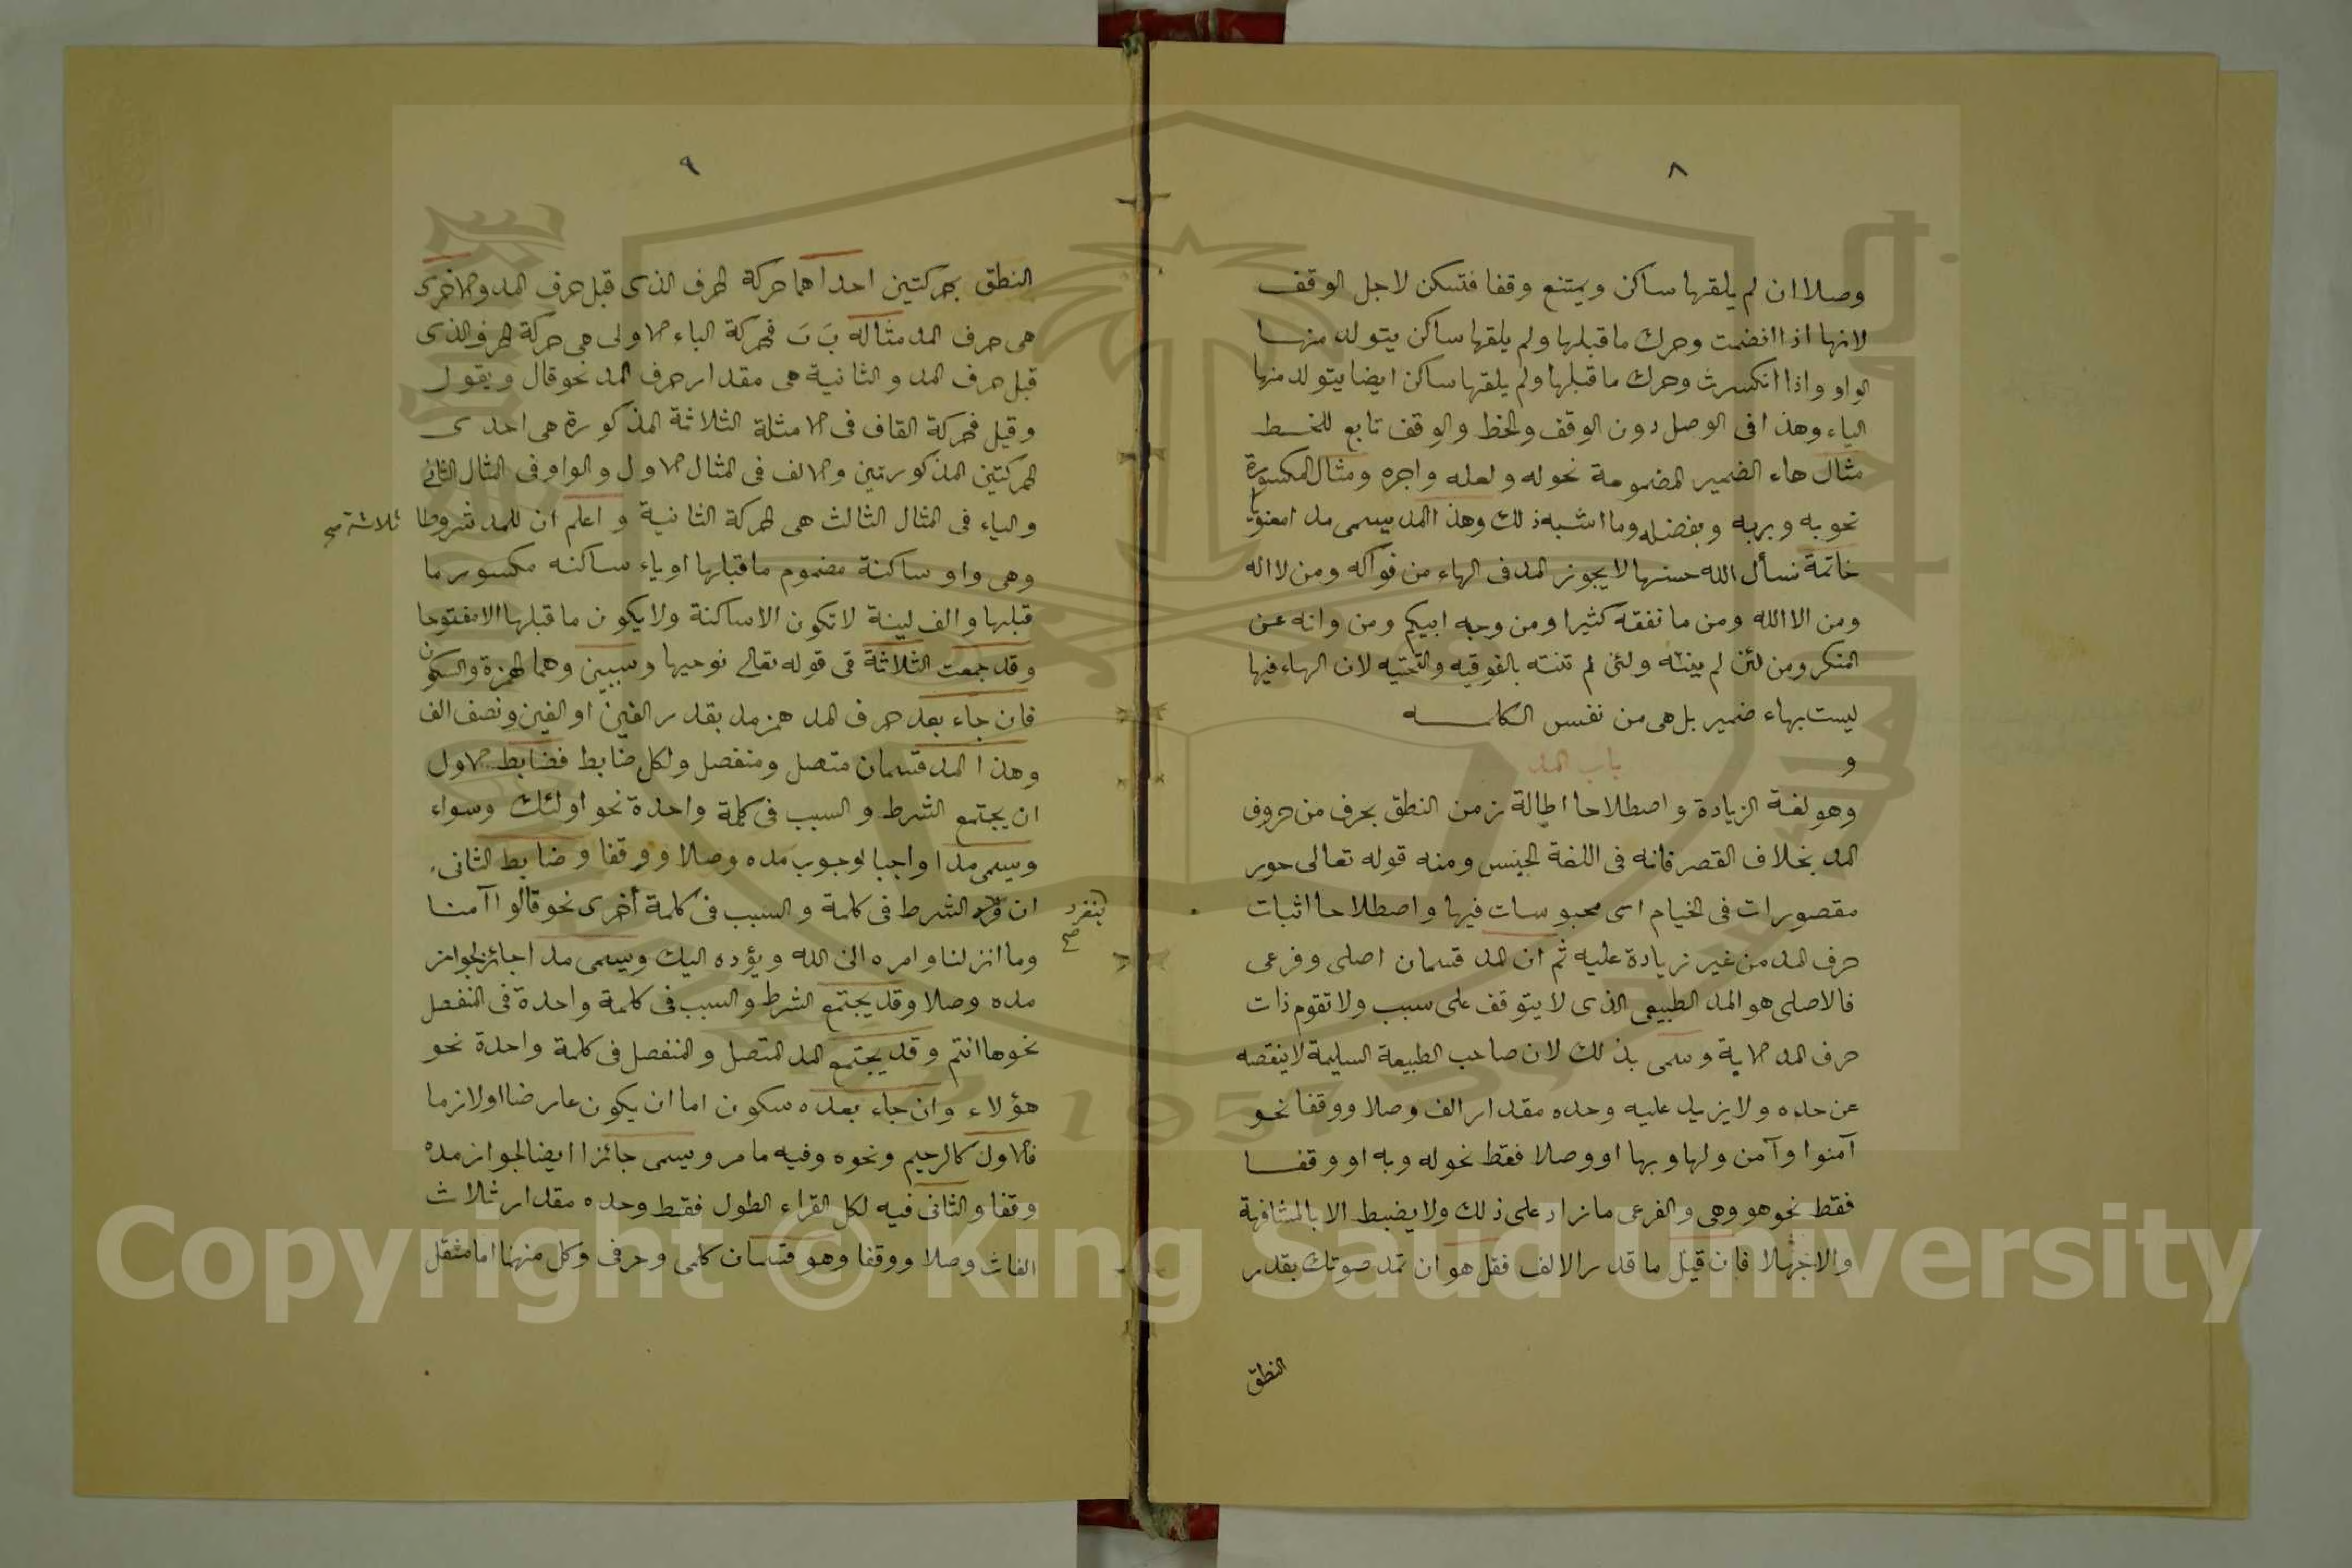 ٨
وصلا ان لم يلقها ساكن ويمتنع وقفا فتسكن لاجل الوقف
لانها اذا انضمت وحرك ماقبلها ولم يلقها ساكن يتولد منها
الواو واذا انكسرت وحرك ماقبلها ولم يلقها ساكن ايضا يتولد منها
الياء وهذا فى الوصل دون الوقف والخط والوقف تابع للخط
مثال هاء الضمير المضمومة نحو له ولعله واجره ومثال المكسورة
نحو به وبربه وبفضله وما اشبه ذلك وهذا المد يسمى مدا معنويا
خاتمة نسأل الله حسنها لا يجوز المد فى الهاء من فواكه ومن لا اله
ومن الا الله ومن ما نفقه كثيرا ومن وجه ابيكم ومن وانه عن
المنكر ومن لئن لم ينته ولئن لم تنته بالفوقيه والتحتيه لان الهاء فيها
ليست بهاء ضمير بل هى من نفس الكلمه
باب المد
و
وهو لغة الزيادة واصطلاحا اطالة زمن النطق بحرف من حروف
المد بخلاف القصر فانه فى اللغة الحبس ومنه قوله تعالى حور
مقصورات فى الخيام اى محبوسات فيها واصطلاحا اثبات
حرف المد من غير زيادة عليه ثم ان المد قسمان اصلى وفرعى
فالاصلى هو المد الطبيعى الذى لا يتوقف على سبب ولا تقوم ذات
حرف المد الا به وسمى بذلك لان صاحب الطبيعة السليمة لا ينقصه
عن حده ولا يزيد عليه وحده مقدار الف وصلا ووقفا نحو
آمنوا وآمن ولها وبها او وصلا فقط نحو له وبه او وقفا
فقط نحو هو وهى والفرعى ما زاد على ذلك ولا يضبط الا بالمشافهة
والا فهلا فان قيل ما قدر الالف فقل هو ان تمد صوتك بقدر
النطق
٩
النطق بحركتين احداهما حركة الحرف الذى قبل حرف المد والاخرى
هى حرف المد مثاله بَ بَ فحركة الباء الاولى هى حركة الحرف الذى
قبل حرف المد والثانية هى مقدار حرف المد نحو قال ويقول
وقيل فحركة القاف فى الامثلة الثلاثة المذكورة هى احدى
الحركتين المذكورتين والالف فى المثال الاول والواو فى المثال الثانى
والياء فى المثال الثالث هى الحركة الثانية واعلم ان للمد شروطا
ثلاثة صح
وهى واو ساكنة مضموم ماقبلها او ياء ساكنه مكسور ما
قبلها والف لينة لا تكون الا ساكنة ولا يكون ما قبلها الا مفتوحا
وقد جمعت الثلاثة فى قوله تعالى نوحيها وسببين وهما الهمزة والسكون
فان جاء بعد حرف المد همز مد بقدر الفين او الفين ونصف الف
وهذا المد قسمان متصل ومنفصل ولكل ضابط فضابط الاول
ان يجتمع الشرط والسبب فى كلمة واحدة نحو اولئك وسواء
ويسمى مدا واجبا لوجوب مده وصلا ووقفا وضابط الثانى
ان الشرط فى كلمة والسبب فى كلمة أخرى نحو قالوا آمنا
ينفرد صح
وما انزلنا وامره الى الله ويؤده اليك ويسمى مدا جائزا لجواز
مده وصلا وقد يجتمع الشرط والسبب فى كلمة واحدة فى المنفصل
نحو هاانتم وقد يجتمع المد المتصل والمنفصل فى كلمة واحدة نحو
هؤلاء وان جاء بعده سكون اما ان يكون عارضا او لازما
فالاول كالرحيم ونحوه وفيه ما مر ويسمى جائزا ايضا لجواز مده
وقفا والثانى فيه لكل القراء الطول فقط وحده مقدار ثلاث
الفات وصلا ووقفا وهو قسمان كلمى وحرفى وكل منهنا اما مثقل
Copyright © King Saud University
1957